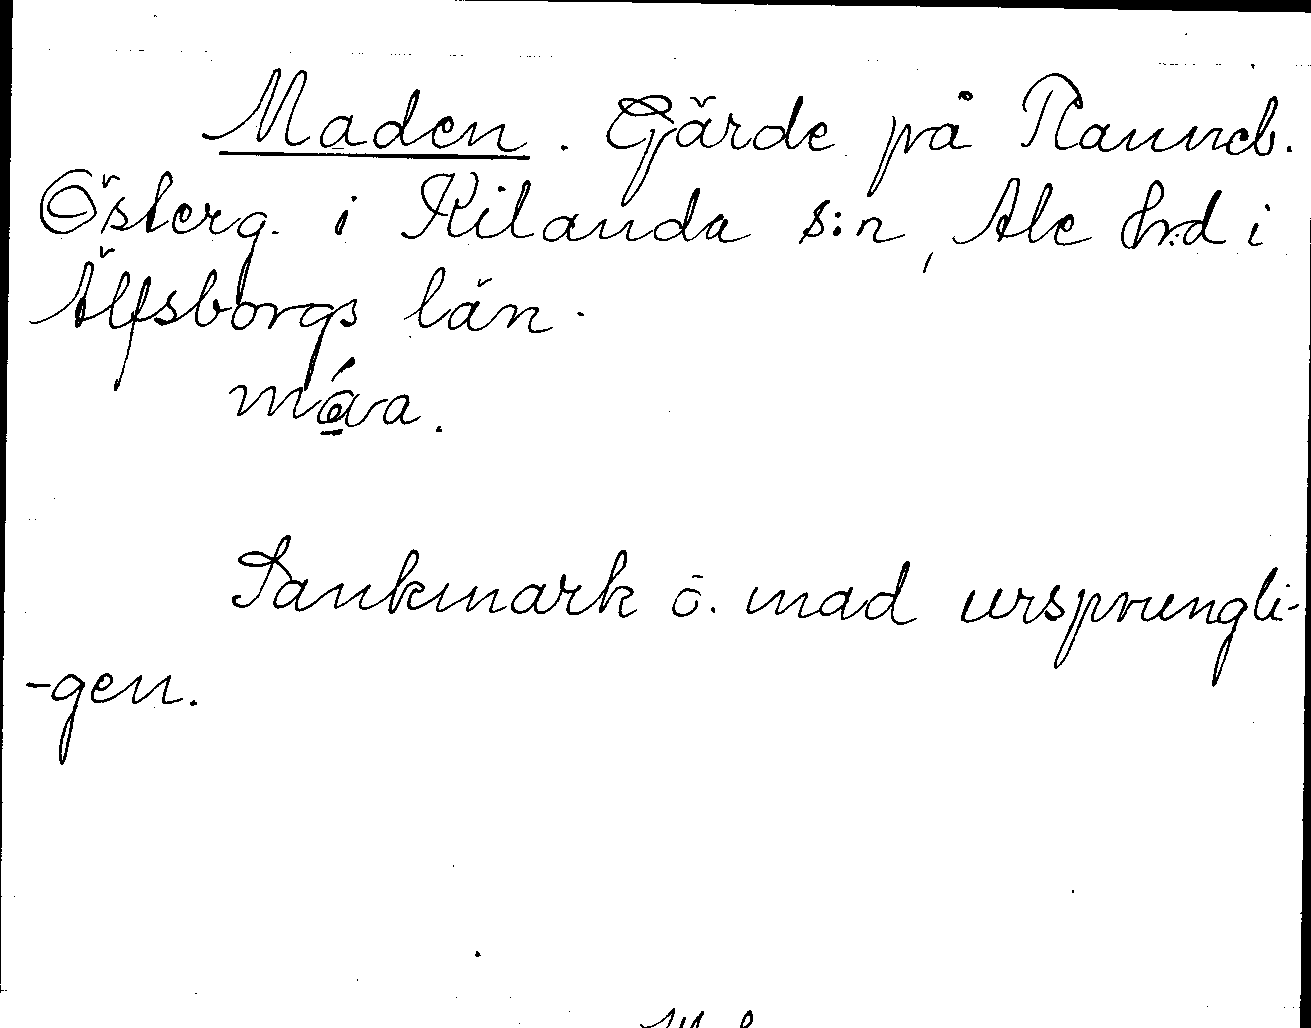 Maden. Gärde på Ranneb.
Österg. i Kilanda s:n, Ale hrd i
Älfsborgs län.
Sankmark o. mad ursprungli-
-gen.